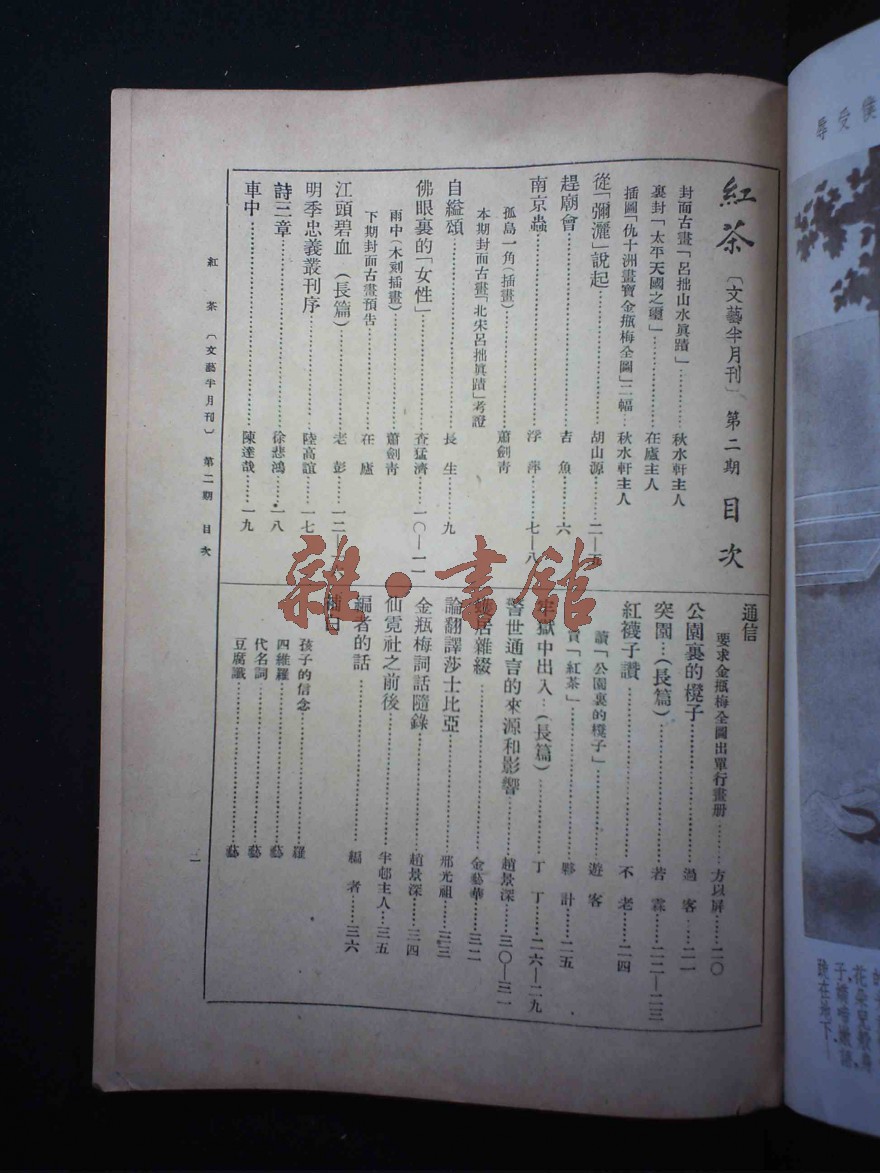 紅茶〔文藝半月刊〕第二期目次
封面古畫「呂拙山水眞蹟」…………秋水軒主人
裏封「太平天國之璽」…………在廬主人
插圖「仇十洲畫寶金瓶梅全圖」二幅…秋水軒主人
從「彌灑」說起…………胡山源……二—五
趕廟會…………吉魚……六
南京蟲…………浮萍……七—八
孤島一角(插畫)…………蕭劍青
本期封面古畫「北宋呂拙眞蹟」考證
自縊頌…………長生……九
佛眼裏的「女性」…………查猛濟……一〇—一一
雨中(木刻插畫)…………蕭劍青
下期封面古畫預告…………在廬
江頭碧血(長篇)…………老彭……一二
明季忠義叢刊序…………陸高誼……一七
詩三章…………徐悲鴻……一八
車中…………陳達哉……一九
通信
要求金瓶梅全圖出單行畫册……方以屏……二〇
公園裏的櫈子…………過客……二一
突圍…(長篇)…………若霖……二二—二三
紅襪子讚…………不老……二四
讀「公園裏的櫈子」…………遊客
賣「紅茶」…………夥計……二五
牢獄中出入…(長篇)…………丁丁……二六—二九
警世通言的來源和影響…………趙景深……三〇—三一
居雜綴…………金藝華……三二
論翻譯莎士比亞…………邢光祖……三三
金瓶梅詞話隨錄…………趙景深……三四
仙霓社之前後…………半邨主人…三五
編者的話…………編者……三六
補白
孩子的信念…………羅
四維羅…………藝
代名詞…………藝
豆腐讖…………藝
紅茶〔文藝半月刊〕第二期目次
一
雜·書館